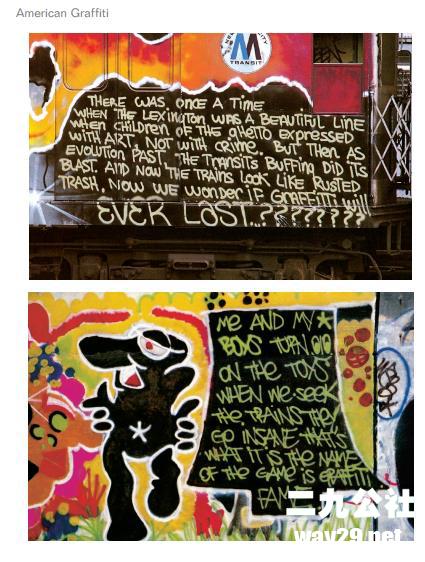 American Graffiti
NEW YORK CITY
M
TRANSIT
THERE WAS ONCE A TIME
WHEN THE LEXINGTON WAS A BEAUTIFUL LINE
WHEN CHILDREN OF THE GHETTO EXPRESSED
WITH ART, NOT WITH CRIME. BUT THEN AS
EVOLUTION PAST, THE TRANSITS BUFFING DID ITS
BLAST. AND NOW THE TRAINS LOOK LIKE RUSTED
TRASH, NOW WE WONDER IF GRAFFITI WILL
EVER LAST..????????
ME AND MY
BOYS TURN
ON THE TOYS
WHEN WE SEEK
THE TRAINS THEY
GO INSANE THAT'S
WHAT IT IS THE NAME
OF THE GAME IS GRAFFITI
FAN
二九公社
way29.net